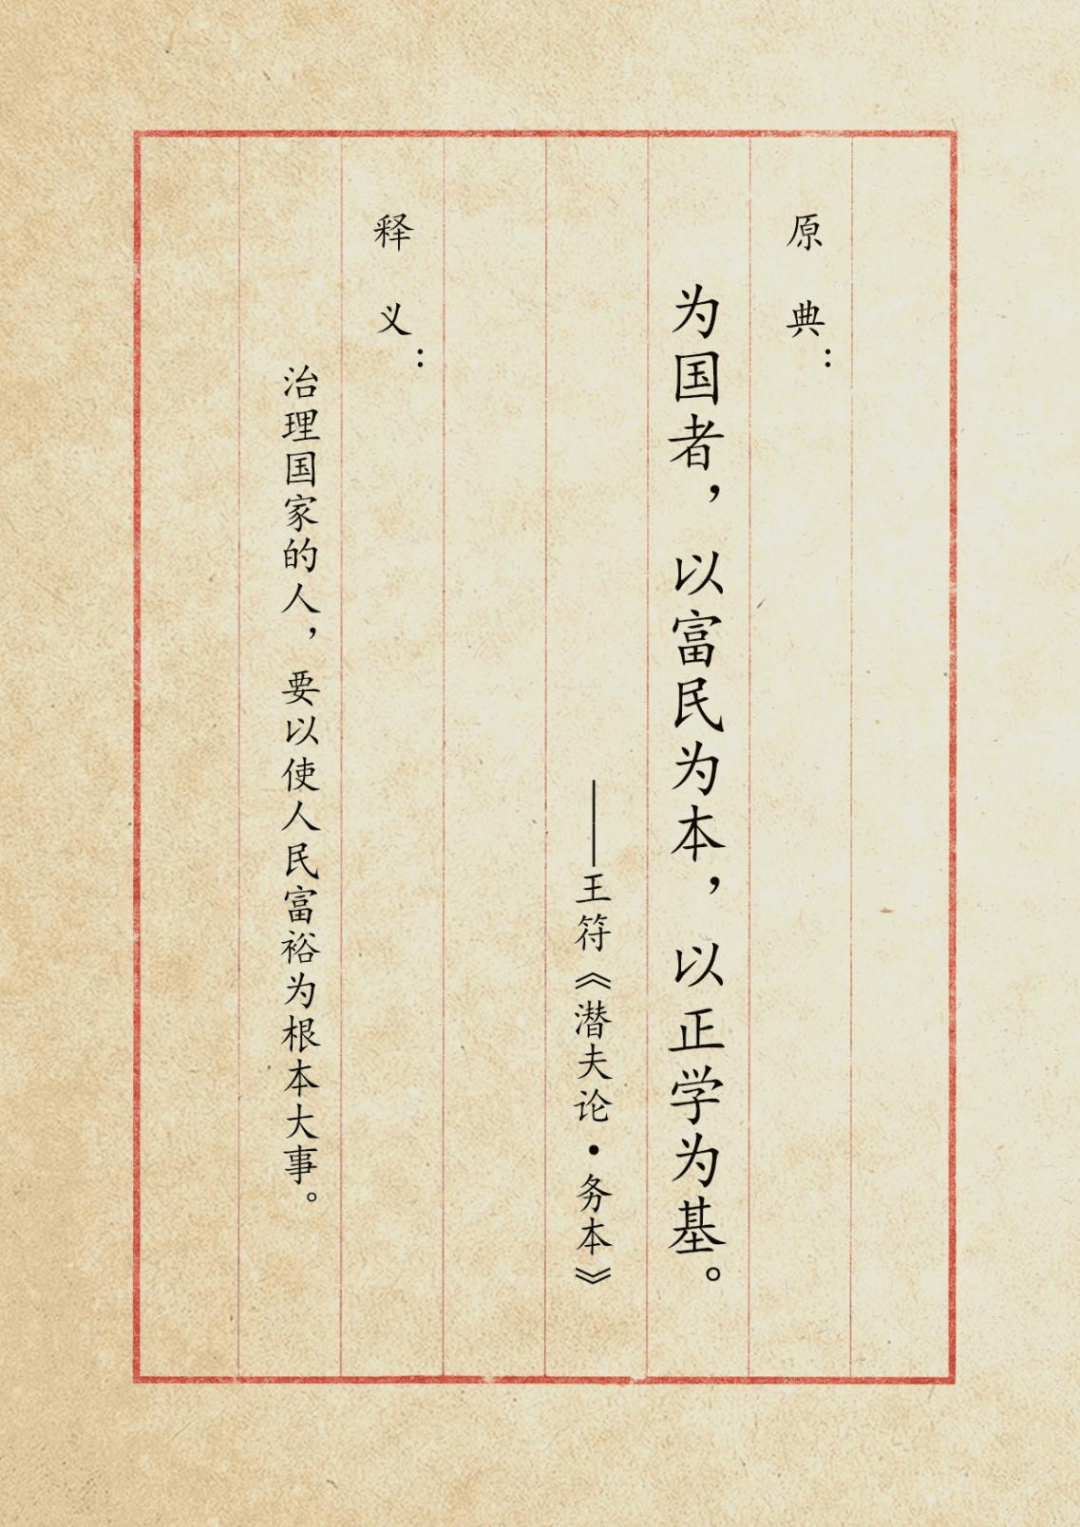 原典：
为国者，以富民为本，以正学为基。
——王符《潜夫论·务本》
释义：
治理国家的人，要以使人民富裕为根本大事。